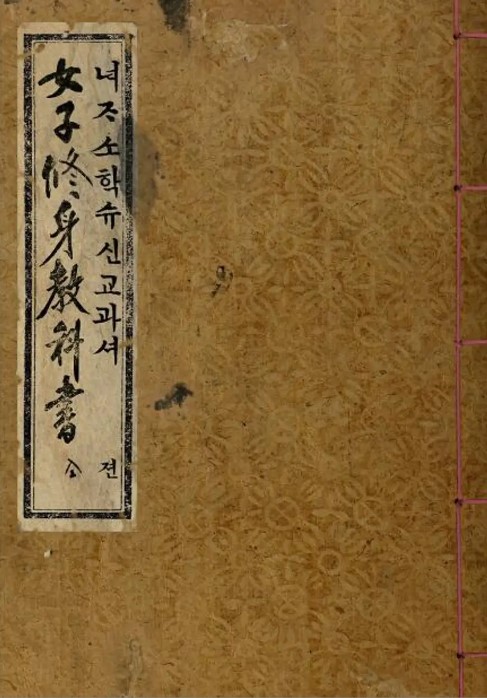 녀ᄌᆞ소학슈신교과셔 젼
女子修身敎科書 全